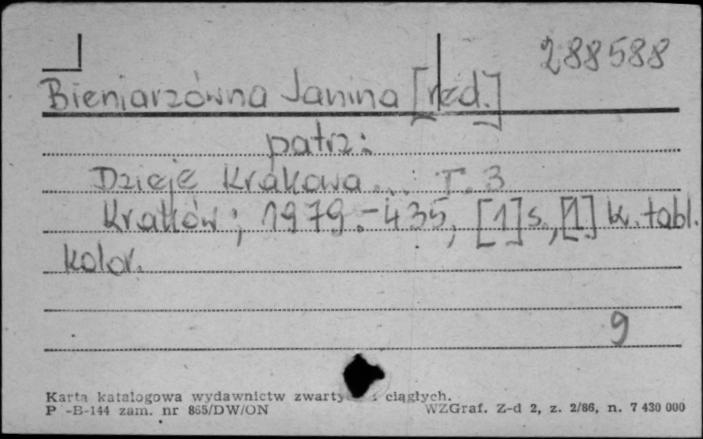 288588
Bieniarzówna Janina [red.]
patrz:
Dzieje Krakowa... T. 3
Kraków; 1979.- 435, [1] s., [1] k. tabl.
kolor.
9
Karta katalogowa wydawnictw zwarty i ciągłych.
P -B-144 zam. nr 865/DW/ON WZGraf. Z-d 2, z. 2/86, n. 7 430 000